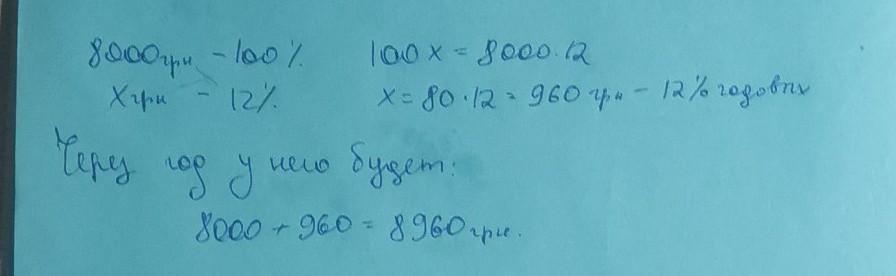 8000грн - 100% 100x = 8000·12
x грн - 12% x = 80·12 = 960 грн - 12% годовых
Через год у него будет:
8000 + 960 = 8960 грн.